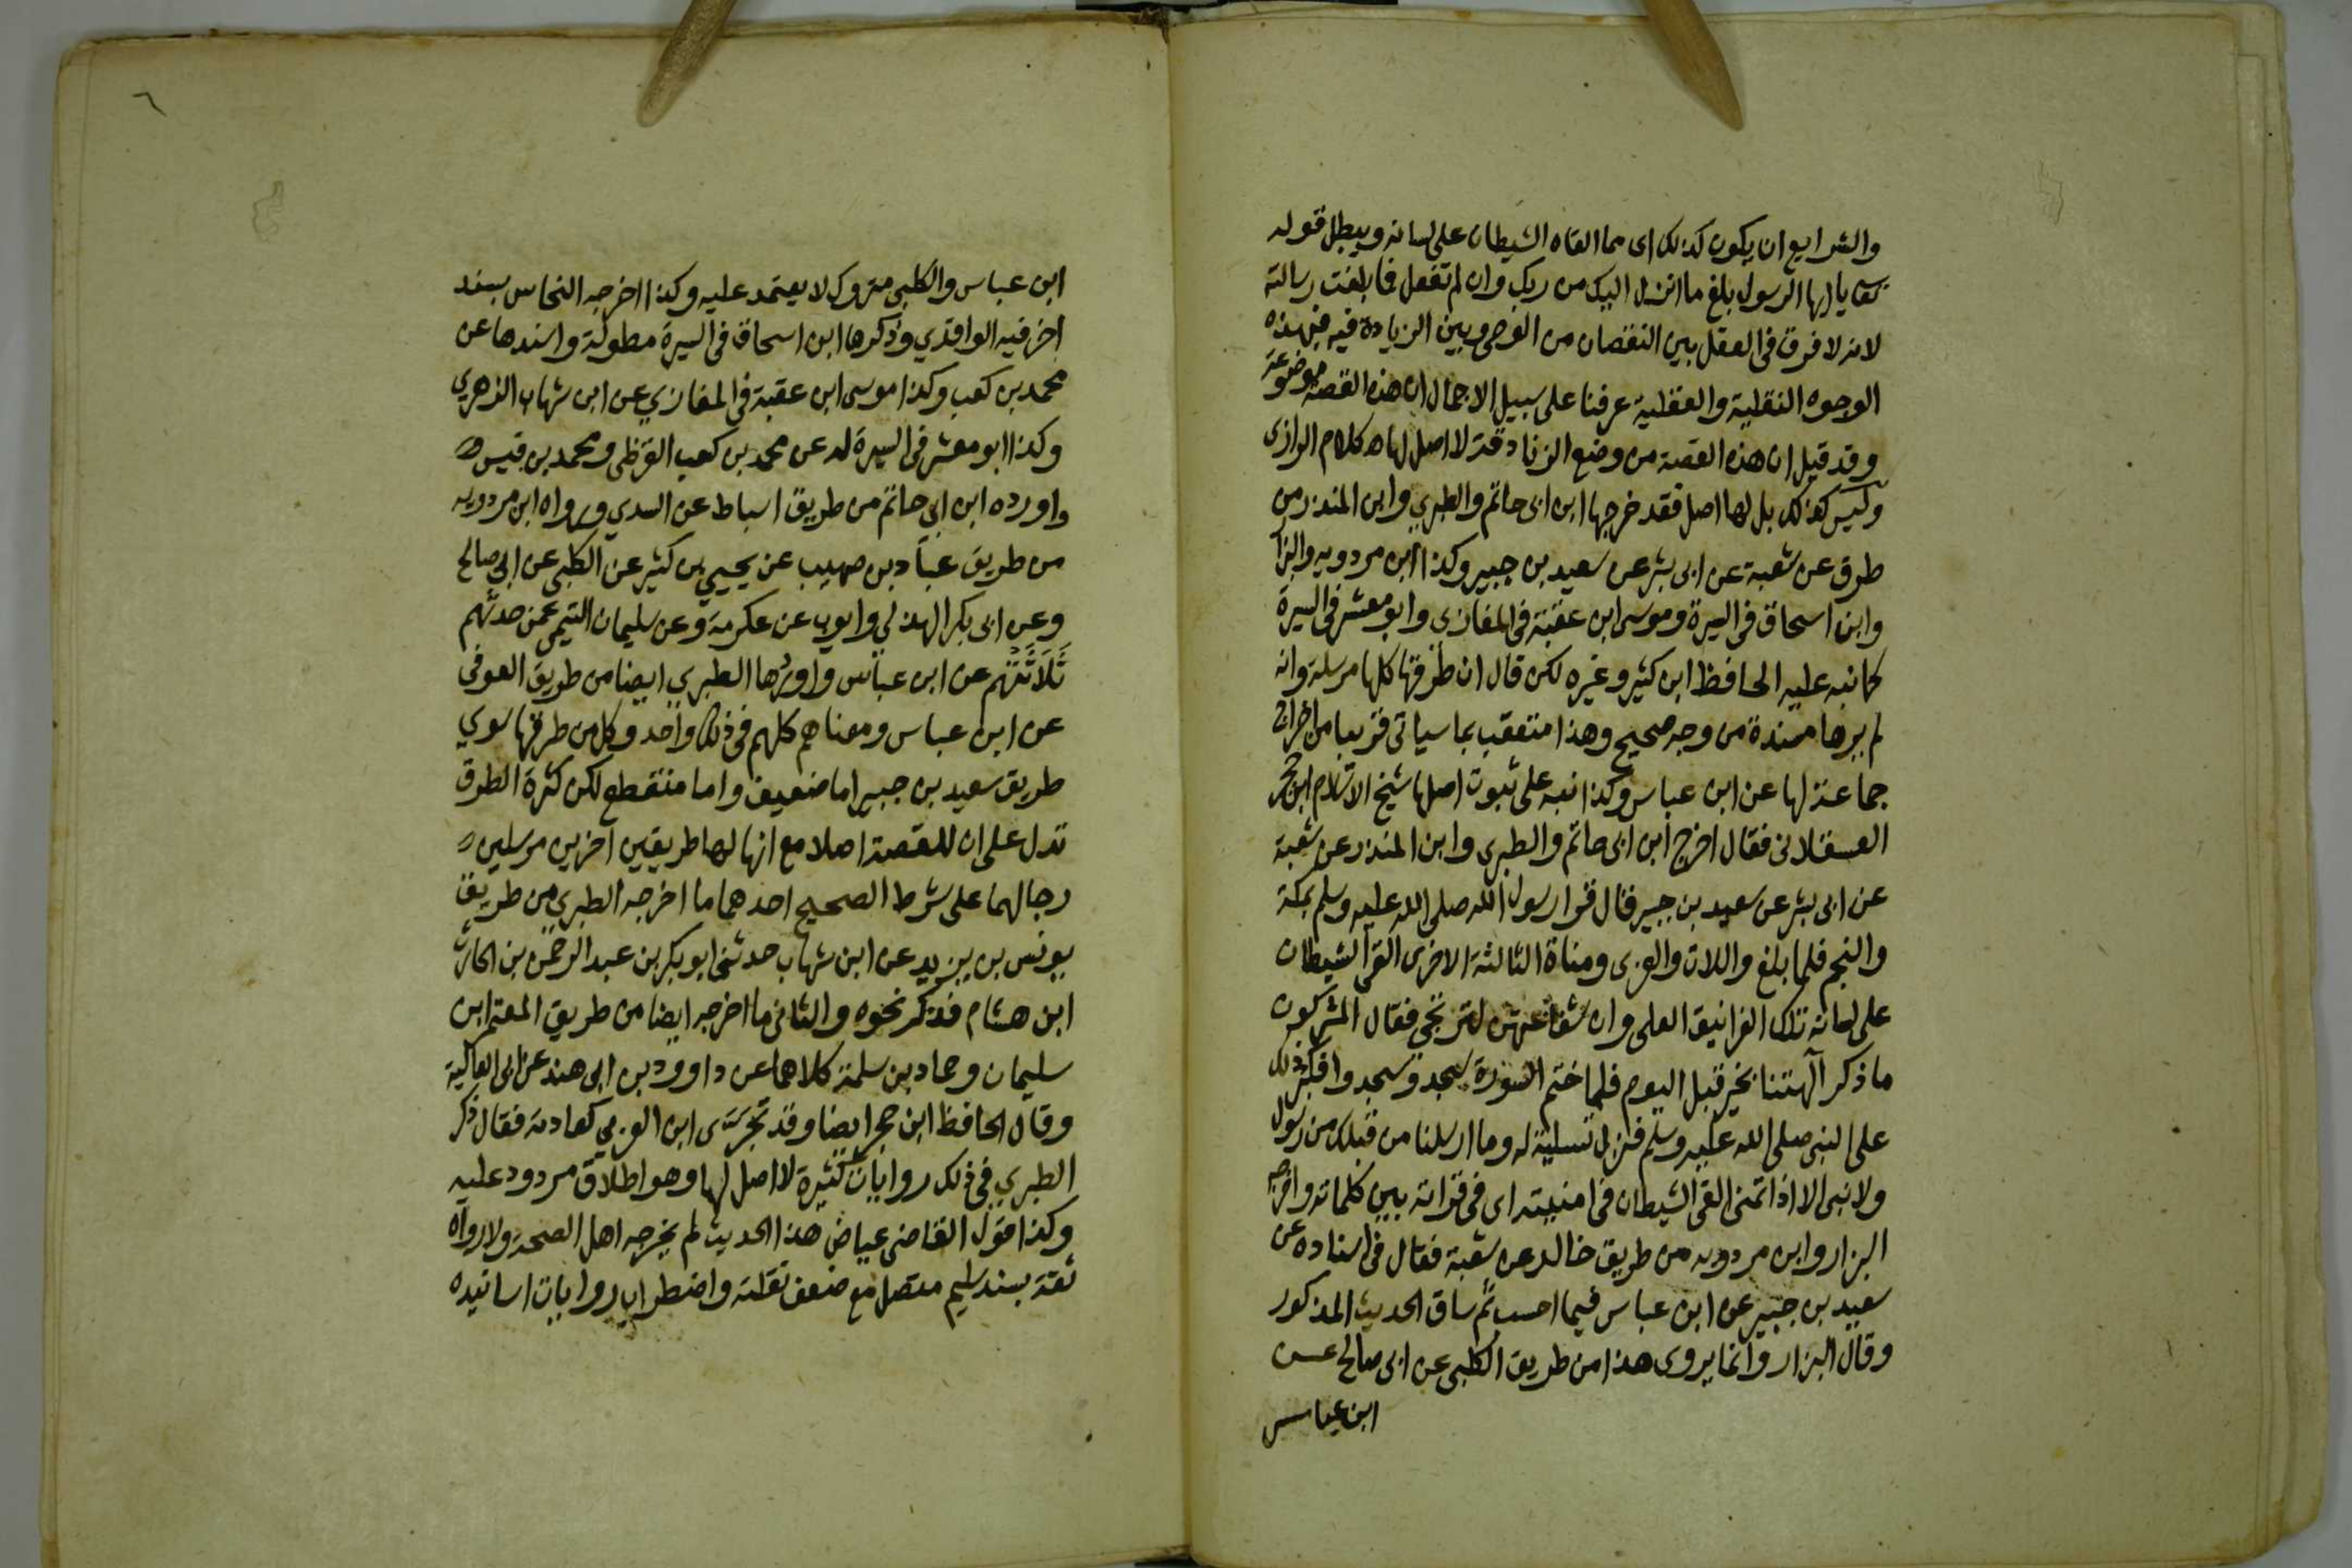 والشرايع ان يكون كذلك اى مما القاه الشيطان على لسانه ويبطل قوله
تعا يا ايها الرسول بلغ ما انزل اليك من ربك وان لم تفعل فما بلغت رسالته
لانه لا فرق فى العقل بين النقصان من الوحى وبين الزيادة فيه فبهذه
الوجوه النقلية والعقلية عرفنا على سبيل الاجمال ان هذه القصة موضوعة
وقد قيل ان هذه القصة من وضع الزنادقة لا اصل لها اه كلام الرازى
وليس كذلك بل لها اصل فقد خرجها ابن ابى حاتم والطبري وابن المنذر من
طرق عن شعبة عن ابى بشر عن سعيد بن جبير وكذا ابن مردويه والبزار
وابن اسحاق فى السيرة وموسى ابن عقبة فى المغازى وابو معشر فى السيرة
كما نبه عليه الحافظ ابن كثير وغيره لكن قال ان طرقها كلها مرسلة وانه
لم يرها مسندة من وجه صحيح وهذا متعقب بما سياتى قريبا من اخراج
جماعة لها عن ابن عباس وكذا نبه على ثبوت اصلها شيخ الاسلام ابن حجر
العسقلانى فقال اخرج ابن ابى حاتم والطبرى وابن المنذر عن شعبة
عن ابى بشر عن سعيد بن جبير قال قرا رسول الله صلى الله عليه وسلم بمكة
والنجم فلما بلغ واللات والعزى ومناة الثالثة الاخرى القى الشيطان
على لسانه تلك الغرانيق العلى وان شفاعتهن لترتجى فقال المشركون
ما ذكر آلهتنا بخير قبل اليوم فلما ختم السورة سجد وسجدوا فكبر ذلك
على النبى صلى الله عليه وسلم فنزل تسلية له وما ارسلنا من قبلك من رسول
ولا نبى الا اذا تمنى القى الشيطان فى امنيته اى فى قراته بين كلماته واخرجه
البزار وابن مردويه من طريق خالد عن شعبة فقال فى اسناده عن
سعيد بن جبير عن ابن عباس فيما احسب ثم ساق الحديث المذكور
وقال البزار وانما يروى هذا من طريق الكلبى عن ابى صالح عن
ابن عباس
٦
ابن عباس والكلبى متروك لا يعتمد عليه وكذا اخرجه النحاس بسند
اخر فيه الواقدي وذكرها ابن اسحاق فى السيرة مطولة واسندها عن
محمد بن كعب وكذا موسى ابن عقبة فى المغازي عن ابن شهاب الزهري
وكذا ابو معشر فى السيرة له عن محمد بن كعب القرظى ومحمد بن قيس
واورده ابن ابى حاتم من طريق اسباط عن السدي ورواه ابن مردويه
من طريق عباد بن صهيب عن يحيي بن كثير عن الكلبى عن ابى صالح
وعن ابى بكر الهذلي وايوب عن عكرمة وعن سليمان التيمى عمن حدثهم
ثلاثتهم عن ابن عباس واوردها الطبري ايضا من طريق العوفى
عن ابن عباس ومعناهم كلهم فى ذلك واحد وكل من طرقها سوي
طريق سعيد بن جبير اما ضعيف واما منقطع لكن كثرة الطرق
تدل على ان للقصة اصلا مع انها لها طريقين آخرين مرسلين
رجالهما على شرط الصحيح احدهما ما اخرجه الطبري من طريق
يونس بن يزيد عن ابن شهاب حدثنى ابو بكر بن عبد الرحمن بن الحارث
ابن هشام فذكر نحوه والثانى ما اخرجه ايضا من طريق المعتمر ابن
سليمان وحماد بن سلمة كلاهما عن داوود بن ابى هند عن ابى العالية
وقال الحافظ ابن حجر ايضا وقد تجرى ابن العربي كعادته فقال ذكر
الطبري فى ذلك روايات كثيرة لا اصل لها وهو اطلاق مردود عليه
وكذا قول القاضى عياض هذا الحديث لم يخرجه اهل الصحة ولا رواه
ثقة بسند سليم متصل مع ضعف نقلته واضطراب روايات اسانيده